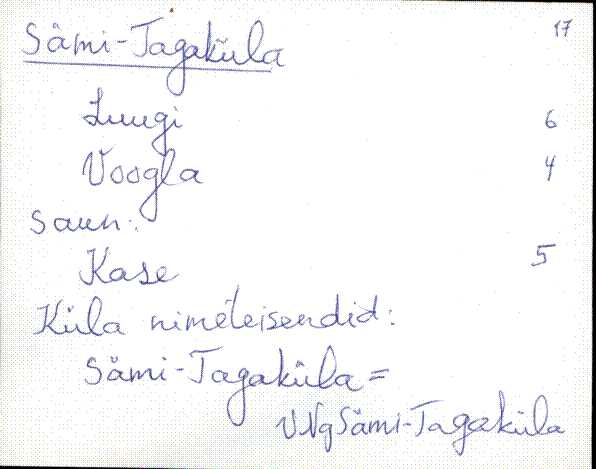 17
Sämi-Tagaküla
Luugi 6
Voogla 4
saun:
Kase 5
Küla nimeteisendid:
Sämi-Tagaküla =
VNg Sämi-Tagaküla